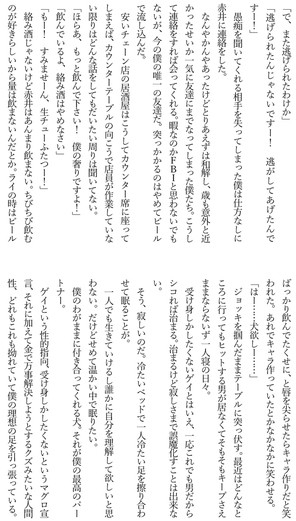 「で、また逃げられたわけか」
「逃げられたんじゃないですー!　逃がしてあげたんで
すー!」
　愚痴を聞いてくれる相手を失ってしまった僕は仕方なしに
赤井に連絡をした。
　なんやかんやあったけどとりあえずは和解し、歳も意外と近
かったせいか一気に友達にまでなってしまった僕たち。こうし
て連絡をすれば会ってくれる。暇なのかFBIと思わないでも
ないが、今の僕の唯一の友達だ。突っかかるのはやめてビール
で流し込んだ。
　安いチェーン店の居酒屋はこうしてカウンター席に座って
しまえば、カウンターテーブルの向こうで店員が作業していな
い限りはどんな話をしてもだいたい周りは聞いてない。
「ほらあ、もっと飲んで下さい!　僕の奢りですよー」
「飲んでいるよ、絡み酒はやめなさい」
「もー!　すみませーん、生チューふたつー!」
　絡み酒じゃないけど赤井はあんまり飲まない。ちびちび飲む
のが好きらしいから量は飲まないんだとか。ライの時はビール
ばっかり飲んでたくせに、と唇を尖らせたらキャラ作りだと笑
われた。あれでキャラ作っていたとかなかなかに笑わせる。
「はー……犬欲しー……」
　ジョッキを掴んだままテーブルに突っ伏す。最近はどんなと
ころに行ってもヒットする男が居なくてそもそもキープさえ
ままならないず一人寝の日々。
　受け身しかしたくないゲイとはいえ、一応これでも男だから
シコれば治まる。治まるけど寂しさまで誤魔化すことは出来な
い。
　そう、寂しいのだ。冷たいベッドで一人冷たい足を擦り合わ
せて眠ることが。
　一人でも生きていけるし誰かに自分を理解して欲しいと思
わない。だけどせめて温かい中で眠りたい。
　僕のわがままに付き合ってくれる犬。それが僕の最高のパー
トナー。
　ゲイという性的指向、受け身しかしたくないというマグロ宣
言、それに加えて金で万事解決しようとするクズみたいな人間
性。どれもこれも拗れていて僕の理想の足を引っ張っている。